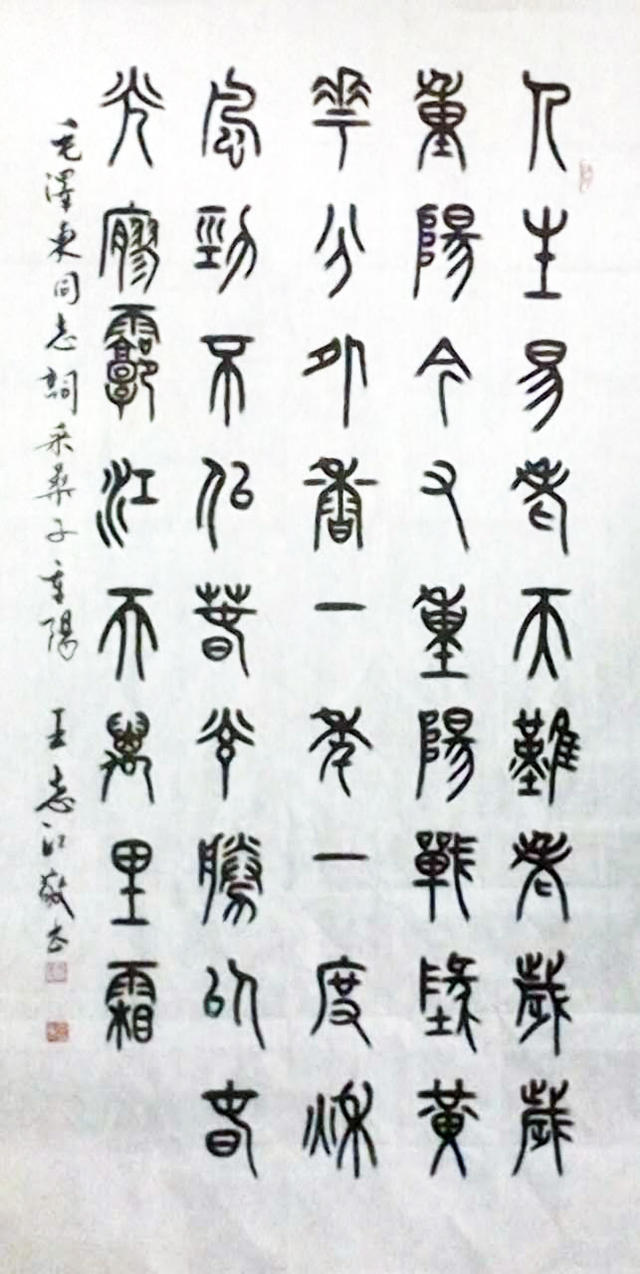 人生易老天難老歲歲
重陽今又重陽戰墬黃
華分外香一年一度秌
風勁不佀春光勝佀春
光廫霩江天萬里霜
毛澤東同志詞采桑子重陽 王志江敬書